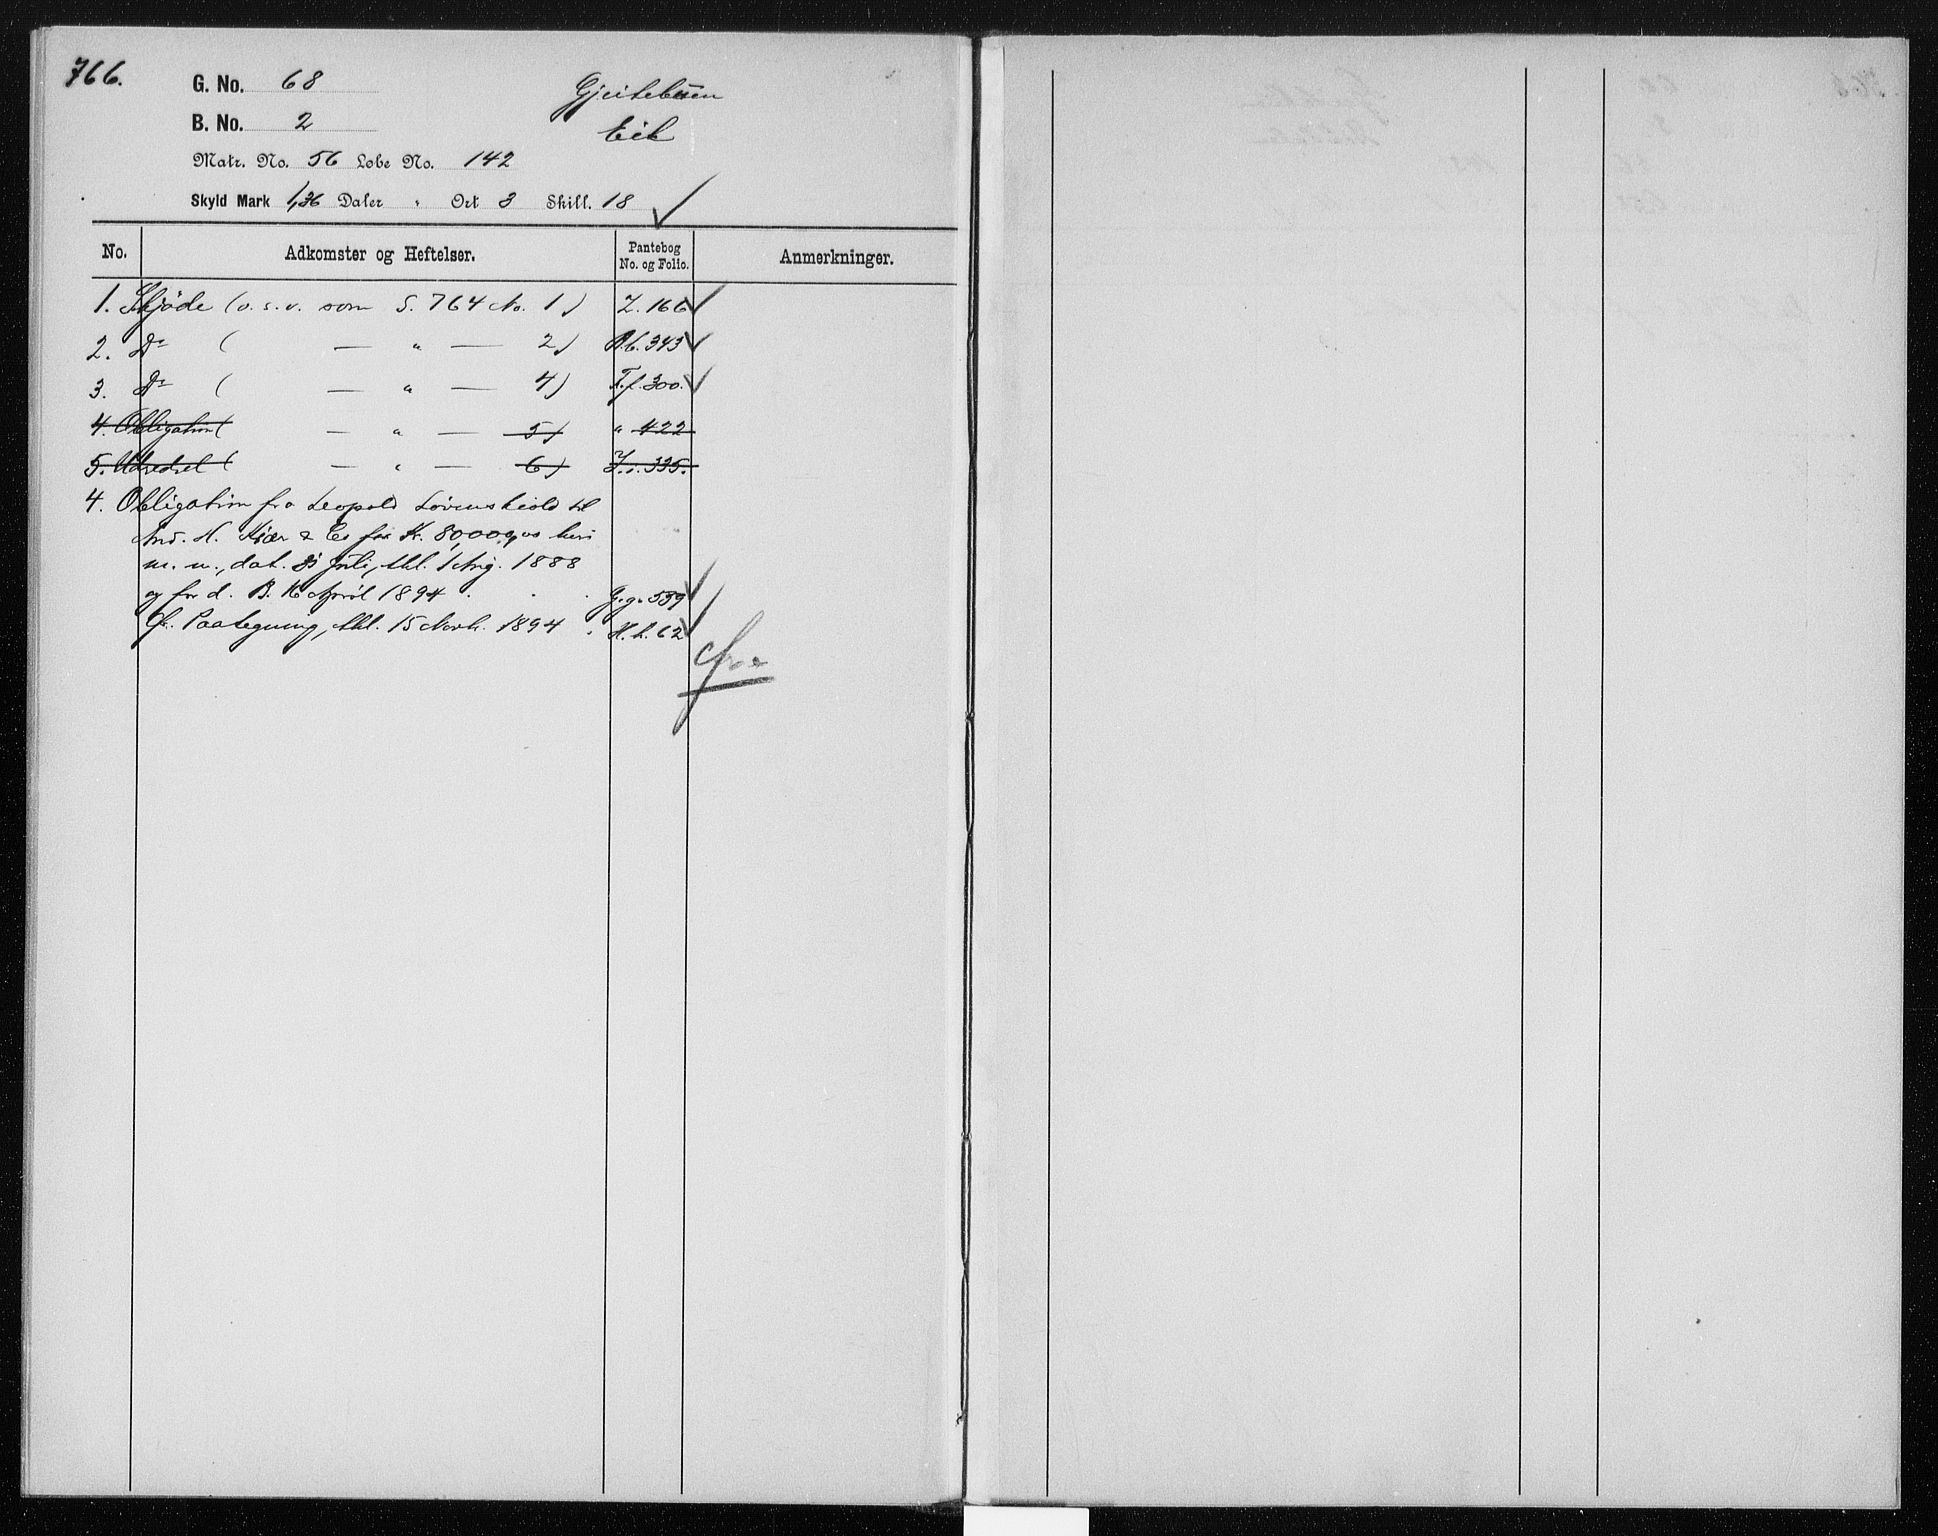 766.
G. No. 68
Gjeitebuen
B. No. 2
Eik
Matr. No. 56 Løbe No. 142
Skyld Mark 1,36 Daler " Ort 3 Skill. 18
No. Adkomster og Heftelser. Pantebog No. og Folio. Anmerkninger.
1. Skjøde (o. s. v. som S. 764 No. 1) Z. 166
2. Do ( — " — 2) B.b. 343
3. Do ( — " — 4) F.f. 300.
4. Obligation ( — " — 5) " 422
5. Udredsel ( — " — 6) 335.
4. Obligation fra Leopold Løvenskiold til
And. H. Kiær & Co for Kr. 80,000,00 heri
m. m., dat. 31 Juli, thl. 1 Aug. 1888
og for d. B. 16 April 1894 . . . G.g. 539
Cfr. Paategning, thl. 15 Novb. 1894 . H.h. 62